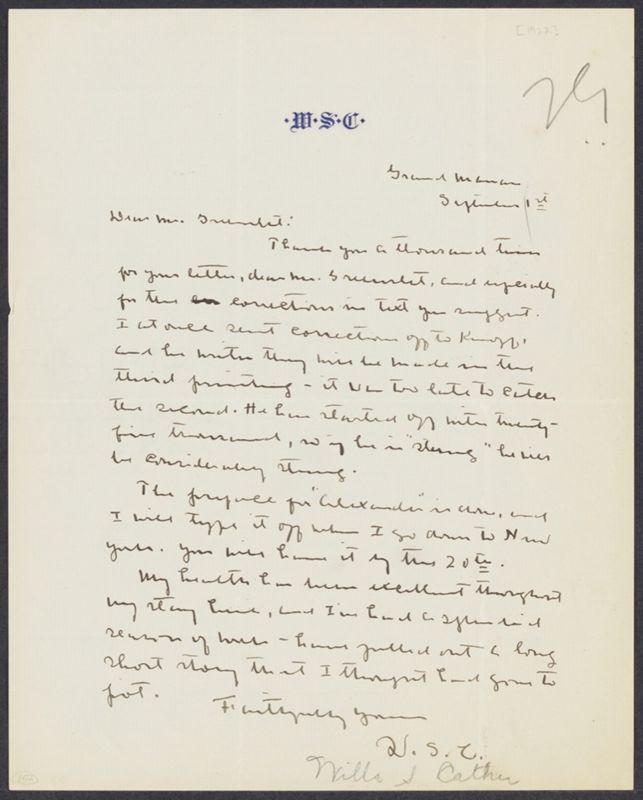 [1922]
·W·S·C·
Grand Manan
September 1st
Dear Mr. Greenslet:
Thank you a thousand times
for your letter, dear Mr. Greenslet, and especially
for the corrections in text you suggest.
I at once sent corrections off to Knopf,
and he writes they will be made in the
third printing - it was too late to catch
the second. He has started off with twenty-
five thousand, so if he is "stung" he will
be considerably stung.
The preface for "Alexander" is done, and
I will type it off when I go down to New
York. You will have it by the 20th.
My health has been excellent throughout
my stay here, and I've had a splendid
season of work - have pulled out a long
short story that I thought had gone to
pot.
Faithfully yours
W. S. C.
Willa S Cather